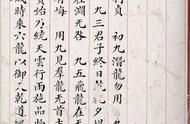 利貞 初九潛龍勿用
九三君子終日
在淵无咎 九五飛龍在
有悔 用九見羣龍无首吉
資始乃統天雲行雨施品物
時乘六龍以御天乾道